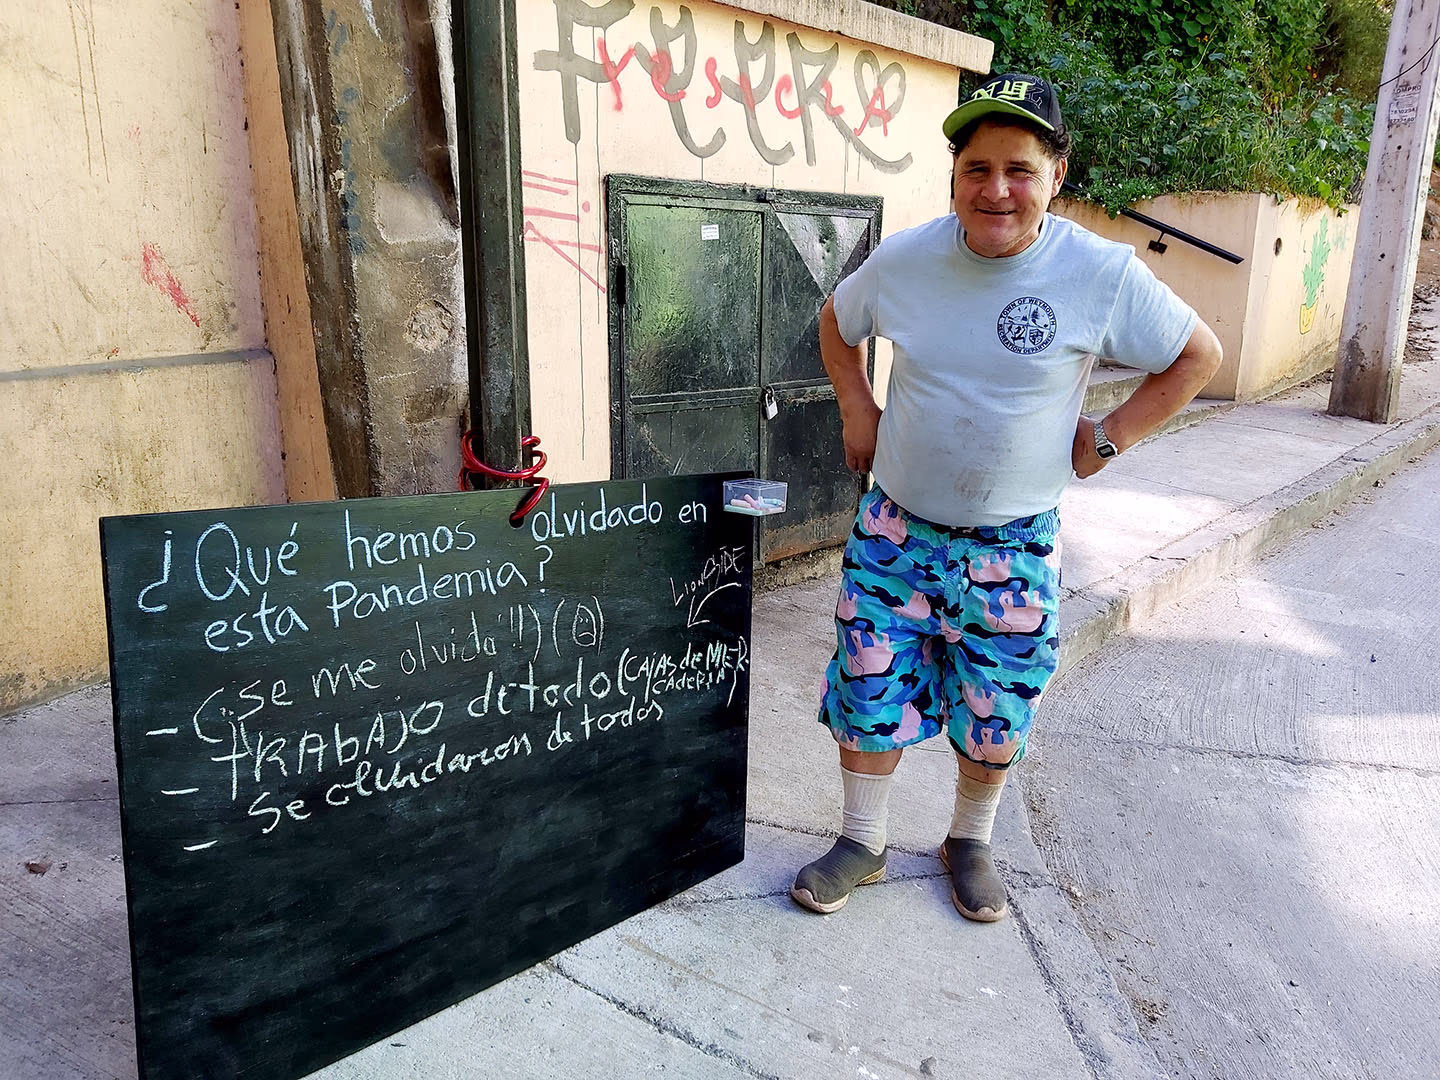 ¿Qué hemos olvidado en
esta Pandemia?
- (¡se me olvidó!!) (☹)
LIONSIDE
- TRABAJO de todo (CAJAS de MER
CADERIA)
- Se olvidaron de todos
Fresia
TOWN OF WEYMOUTH
RECREATION DEPARTMENT
COMPRO